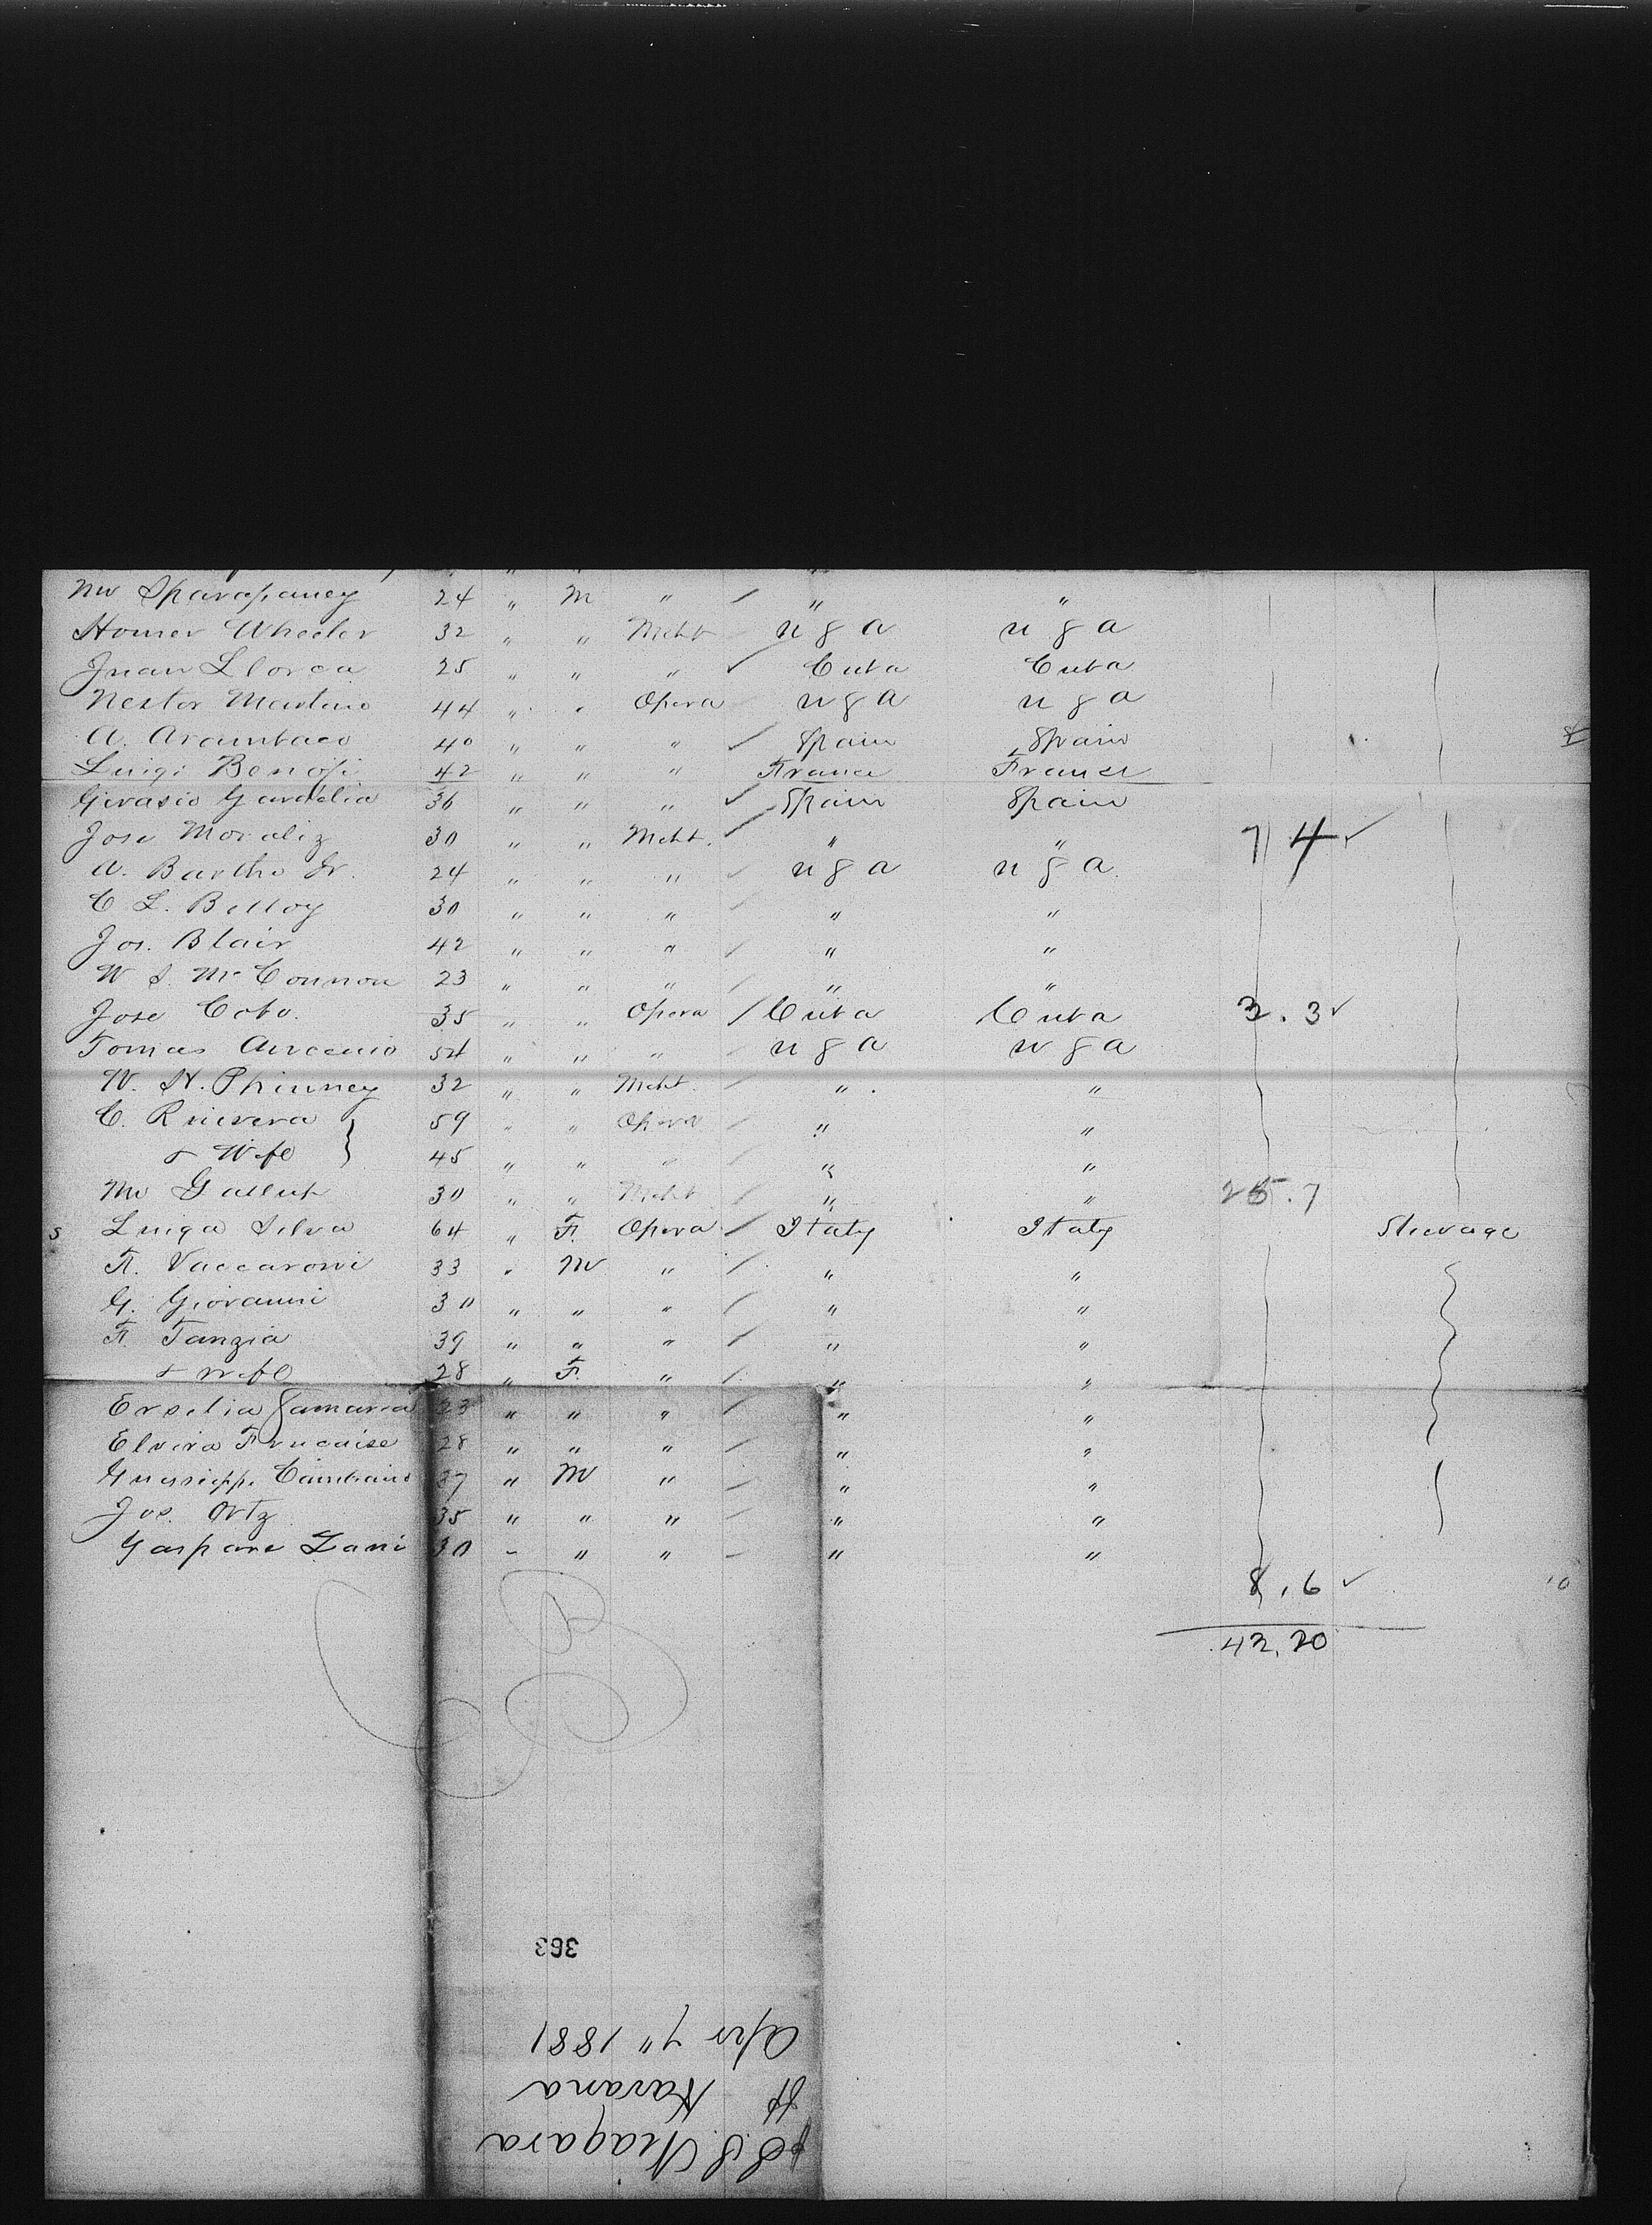 Mr Sparapaney 24 " M " / " "
Homer Wheeler 32 " " Mcht / U S A U S A
Juan Llorca 25 " " " ✓ Cuba Cuba
Nestor Martino 44 " " Opera U S A U S A
A. Arambaco 40 " " " ✓ Spain Spain
Luigi 42 " " " France France
Girasio Gardelia 36 " " " ✓ Spain Spain
Jose Moraliz 30 " " Mcht. ✓ " " 7 4 ✓
A. Bartho Jr. 24 " " " U S A U S A
C L. Belloy 30 " " " " "
Jos. Blair 42 " " " / " "
W S. McConnon 23 " " " / " "
Jose Cobo. 35 " " Opera / Cuba Cuba 3. 3 ✓
Tomas 54 " " " U S A U S A
W. H. Phinney 32 " " Mcht. / " "
C. 59 " " Opera / " "
& Wife } 45 " " " / " "
Mr Gallup 30 " " Mcht / " " .7
S Luiga Silva 64 " F. Opera / Italy Italy Steerage
F. Vaccaroni 33 " M " / " "
G. Giovanni 30 " " " / " "
F. Tanzia 39 " " " / " "
& Wife 28 " F. " / " "
Ersilia 23 " " " / " "
Elvira 28 " " " / " "
37 " M " / " "
Jos. Ortz 35 " " " / " "
Gaspare Zani 30 " " " / " "
8. 6 ✓
42. 20
363
Apr 7" 1881
ff Havana
p S.S. Niagara